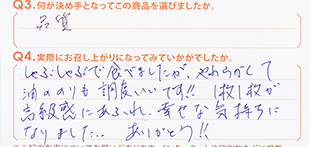 Q3.何が決め手となってこの商品を選びましたか。
品質
Q4.実際にお召し上がりになってみていかがでしたか。
しゃぶしゃぶで食べましたが、やわらかくて
油ののりも調度いいです!! 1枚1枚が
高級感にあふれ、幸せな気持ちに
なりました… ありがとう!!